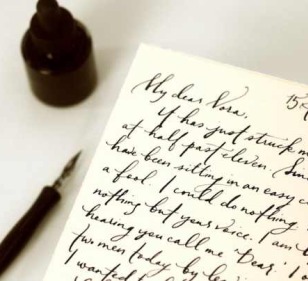 My dear Nora,
15
It has just struck
at half past eleven.
have been sitting in an easy
a fool. I could do nothing
nothing but your voice. I am
hearing you call me 'Dear.'
two men today by
I wanted